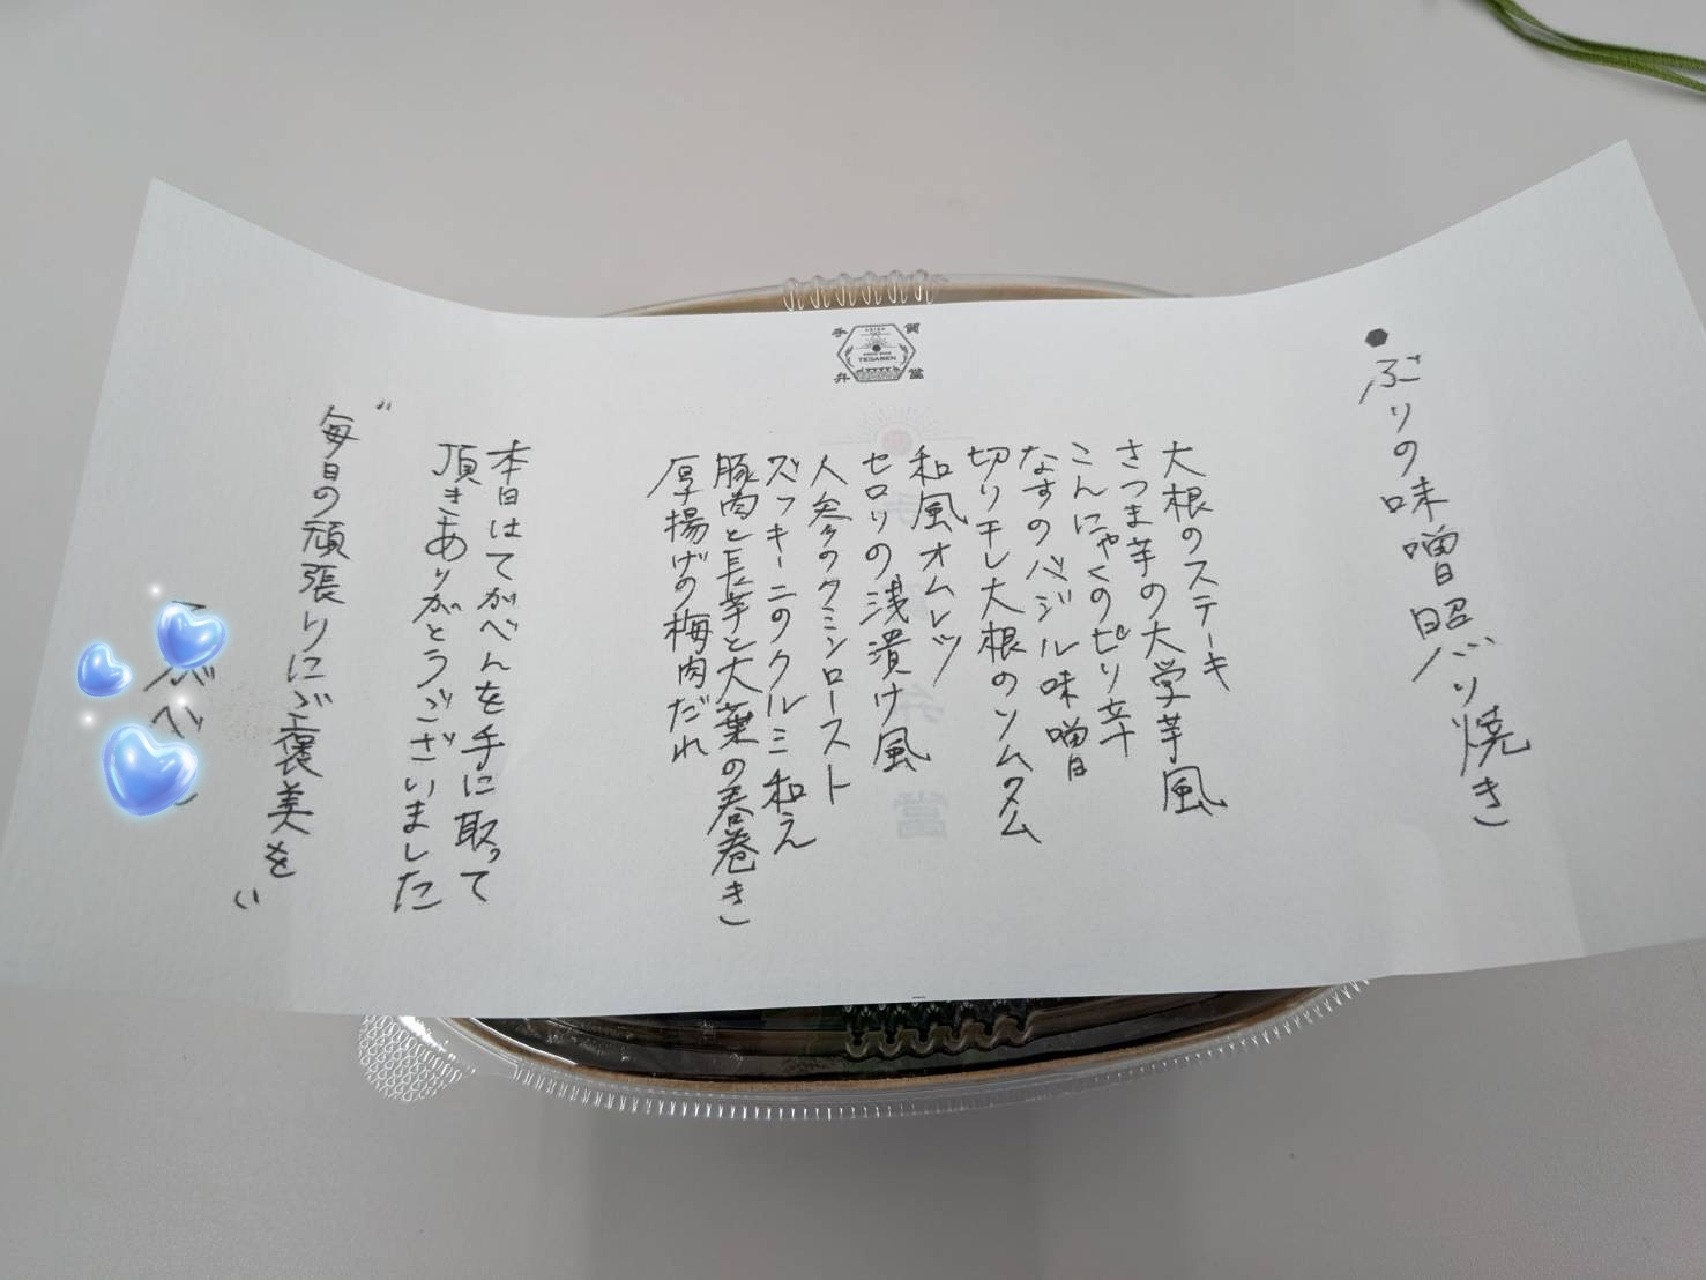 ●ぶりの味噌照り焼き
大根のステーキ
さつま芋の大学芋風
こんにゃくのピリ辛
なすのバジル味噌
切り干し大根のソムタム
和風オムレツ
セロリの浅漬け風
人参のクミンロースト
ズッキーニのクルミ和え
豚肉と長芋と大葉の春巻き
厚揚げの梅肉だれ
本日はてがべんを手に取って
頂きありがとうございました
"毎日の頑張りにご褒美を"
手賀弁當
TEGABEN